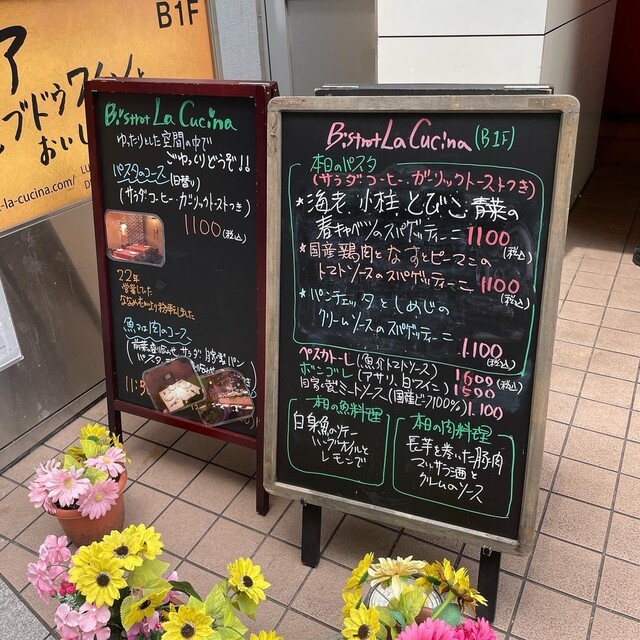 B1F
ア
ブドゥワインと
おいし
-la-cucina.com/
Bistrot La Cucina
ゆったりとした空間の中で
ごゆっくりどうぞ!!
パスタのコース(日替り)
(サラダ・コーヒー・ガーリックトーストつき)
1100(税込)
22年
営業してた
魚又は肉のコース
Bistrot La Cucina (B1F)
本日のパスタ
(サラダ・コーヒー・ガーリックトーストつき)
*海老、小柱、とびこ、青菜の
春キャベツのスパゲッティーニ 1100(税込)
*国産鶏肉となすとピーマンの
トマトソースのスパゲッティーニ 1100(税込)
*パンチェッタとしめじの
クリームソースのスパゲッティーニ
1.100(税込)
ペスカトーレ(魚介トマトソース) 1600(税込)
ボンゴレ(アサリ、白ワイン) 1500
自家製ミートソース(国産ビーフ100%) 1.100
本日の魚料理
白身魚のソテー
ハーブオイルと
レモンで
本日の肉料理
長芋を巻いた豚肉
マルサラ酒と
クリームのソース